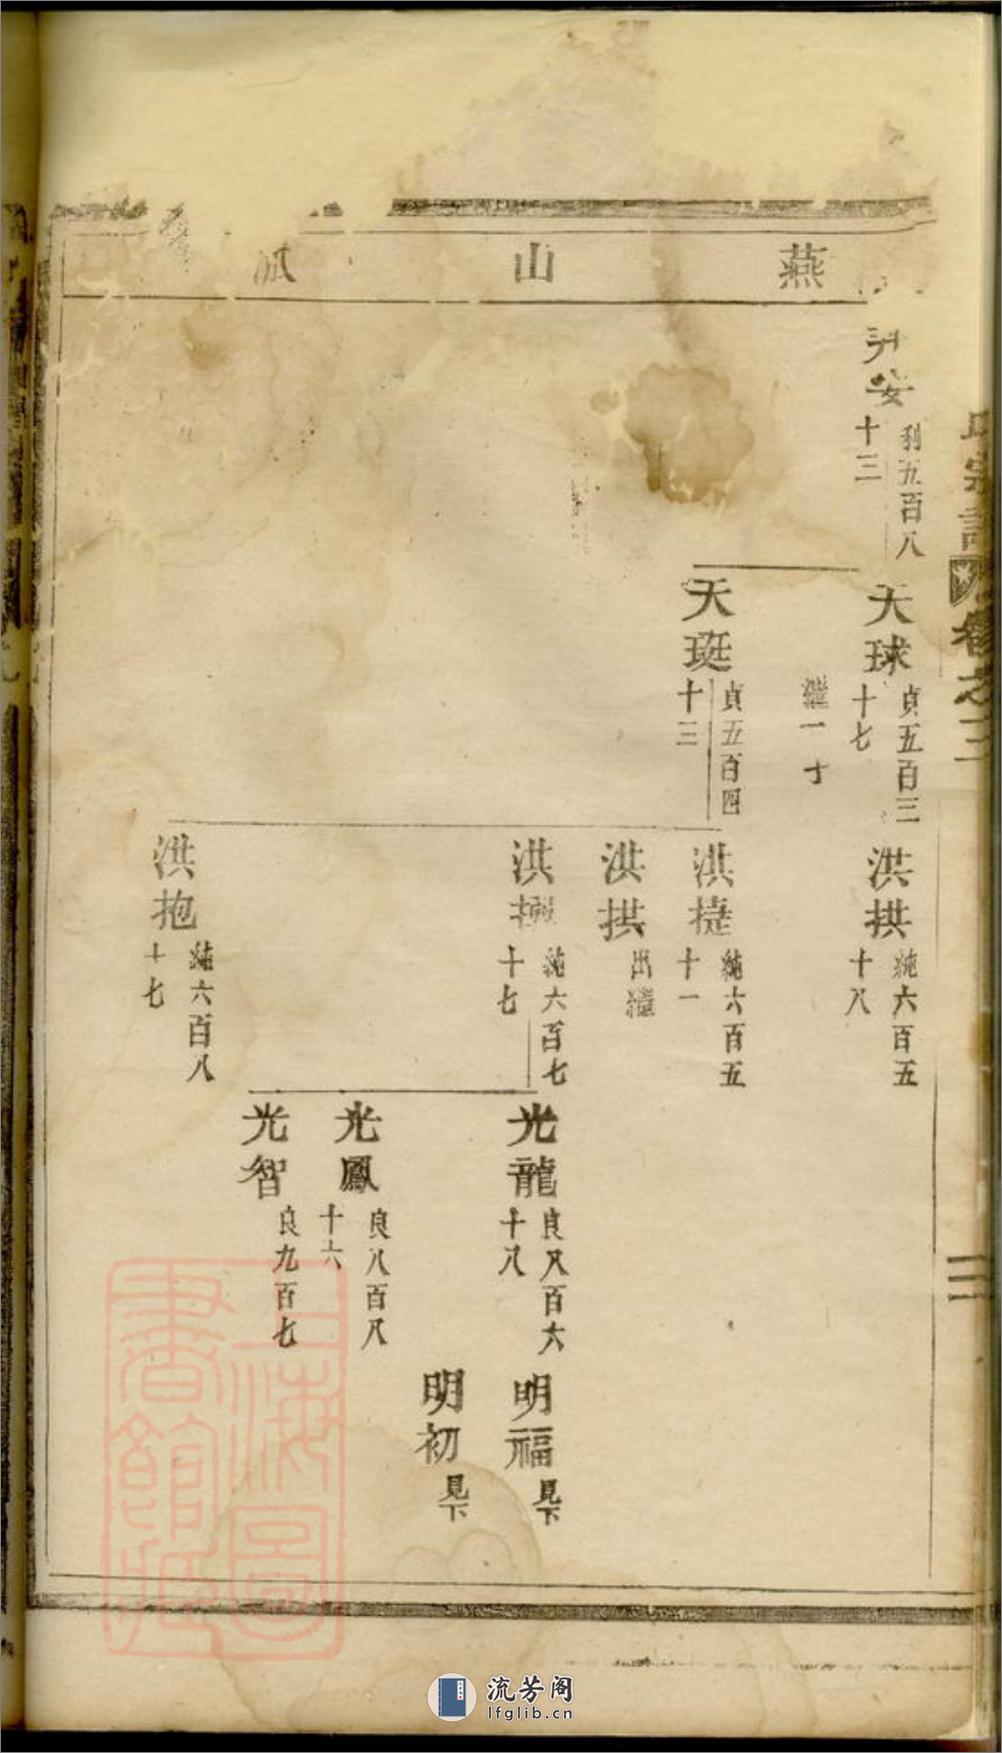 燕山
安
利五百八
十三
天球
貞五百三
十七
繼一子
天珽
貞五百四
十三
洪拱
純六百五
十八
洪捷
純六百五
十一
洪拱
出繼
洪
純六百七
十七
洪抱
純六百八
十七
光龍
良八百六
十八
光鳳
良八百八
十六
光智
良九百七
明福
見下
明初
見下
氏宗譜
卷之三
上海圖書館藏
流芳阁
lfglib.cn